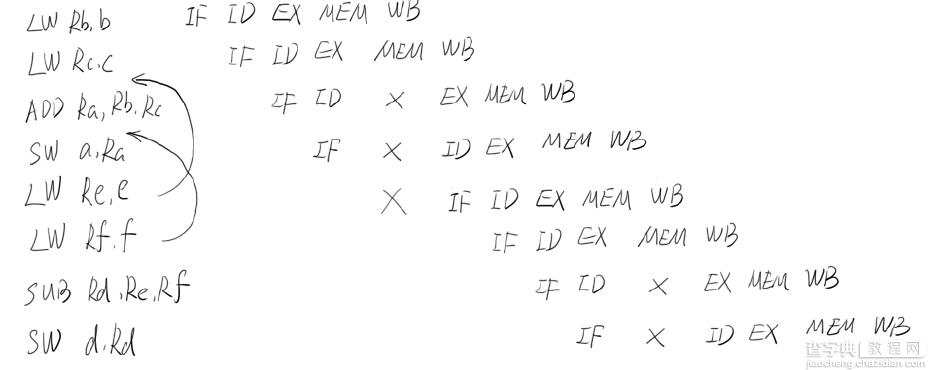 LW Rb,b IF ID EX MEM WB
LW Rc.c IF ID EX MEM WB
ADD Ra,Rb.Rc IF ID X EX MEM WB
SW a,Ra IF X ID EX MEM WB
LW Re,e X IF ID EX MEM WB
LW Rf.f IF ID EX MEM WB
SUB Rd,Re,Rf IF ID X EX MEM WB
SW d,Rd IF X ID EX MEM WB
查字典 教程网
jiaocheng.chazidian.com